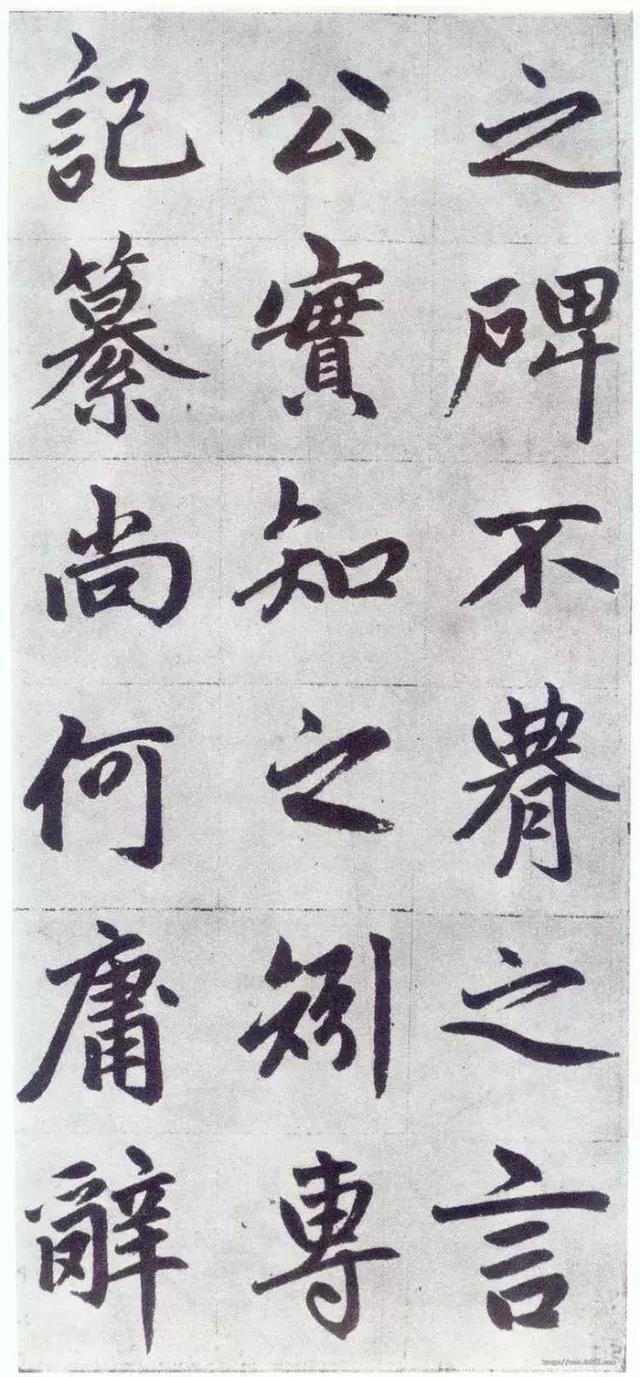 之碑不之言
公實知之矧專
記纂尚何庸辭